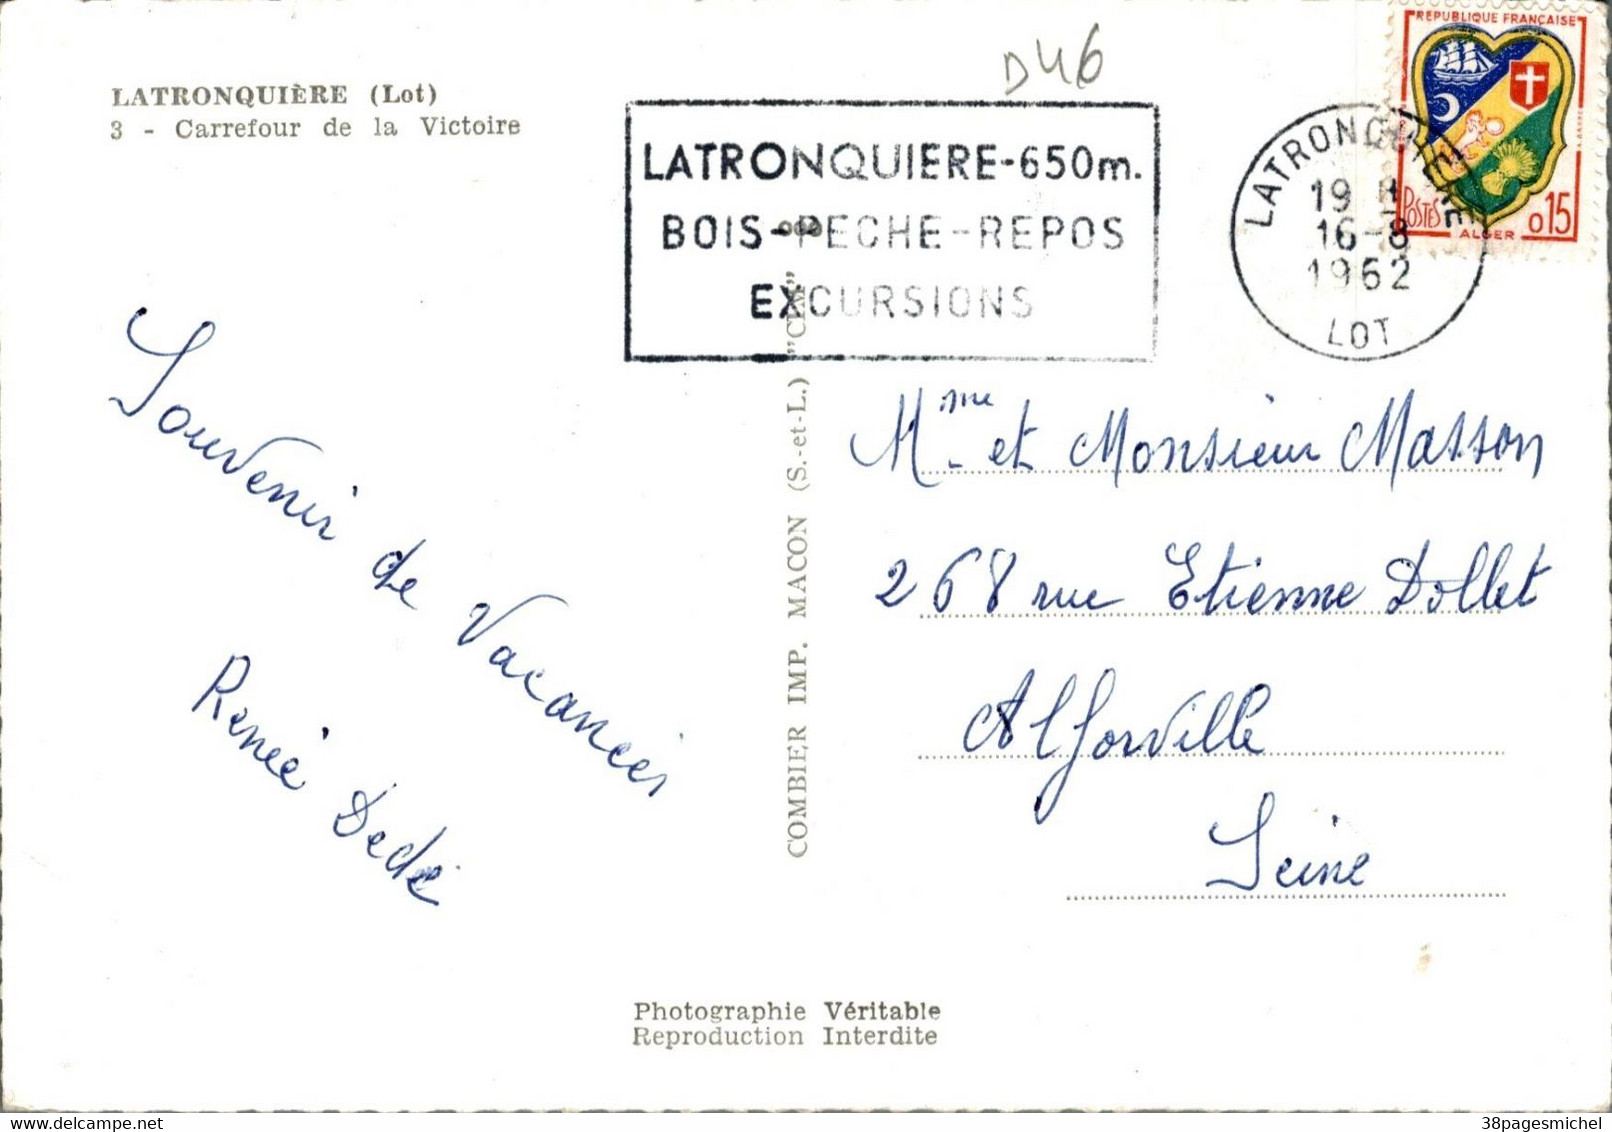 LATRONQUIÈRE (Lot)
3 - Carrefour de la Victoire
D46
LATRONQUIERE-650m.
BOIS-PECHE-REPOS
EXCURSIONS
LATRONQUIERE
19 H
16-8
1962
LOT
REPUBLIQUE FRANÇAISE
POSTES
ALGER
0,15
Souvenir de Vacances
Renée Dédé
COMBIER IMP. MACON (S.-et-L.) "CIM"
Mme et Monsieur Masson
268 rue Etienne Dollet
Alforville
Seine
Photographie Véritable
Reproduction Interdite
38pagesmichel